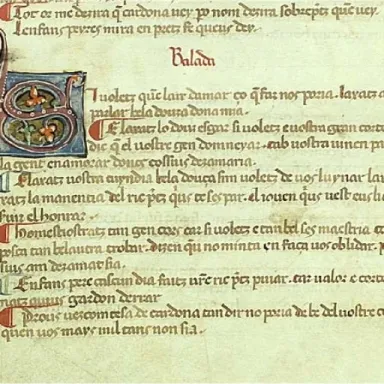 Tot or me denra q̃ cardona vey po nom denra sobrep̃tz que vey.
lenfans peyres mira en pretz fe queus dey.
Balada
Si voletz que lais damar ço q̃ far nos poria. laratz a
parlar bela douça dona mia.
Elaratz lo dous esgar si voletz e vostra gran corte
dic q̃ el vostre gen domneyar. eab vostra vinen pa
la gent enamorar doncs cossius desamaria.
Elaratz vostra cuyndia bela douça sim voletz de vos lunar lar
ratz la manentia del ric p̃tz q̃ te ses par. el joven que vest eus lu
fuir el honrar.
Ihom es mostratz tan gen cors car si voletz e tan bel ses maestria co
posca tan belautra trobar. dizen q̃ no minta en faça vos oblidar. p
suius am desamar sia.
Enfans pere cascun dia faitz vr̃e ric pretz puiar. car valor e corte
natz quius gardon derrar
Pros vezcomtessa de cardona tan dir no poria de be del vostre c
quen vos mays mil tans non sia.